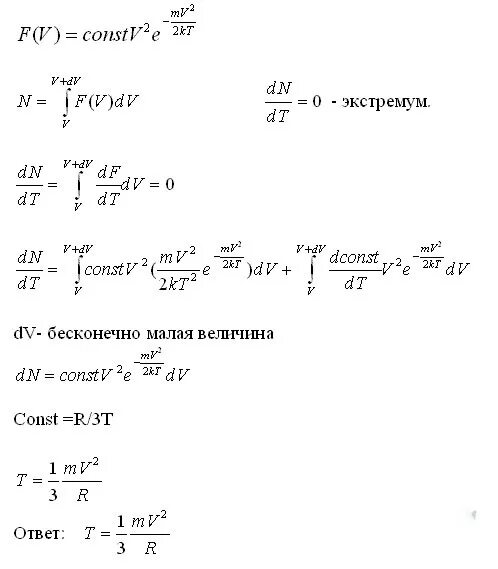 F(V) = constV²e^{-\frac{mV²}{2kT}}
N = \int_{V}^{V+dV} F(V)dV \frac{dN}{dT} = 0 - экстремум.
\frac{dN}{dT} = \int_{V}^{V+dV} \frac{dF}{dT}dV = 0
\frac{dN}{dT} = \int_{V}^{V+dV} constV²(\frac{mV²}{2kT²}e^{-\frac{mV²}{2kT}})dV + \int_{V}^{V+dV} \frac{dconst}{dT}V²e^{-\frac{mV²}{2kT}}dV
dV- бесконечно малая величина
dN = constV²e^{-\frac{mV²}{2kT}}dV
Const =R/3T
T = \frac{1}{3}\frac{mV²}{R}
Ответ: T = \frac{1}{3}\frac{mV²}{R}